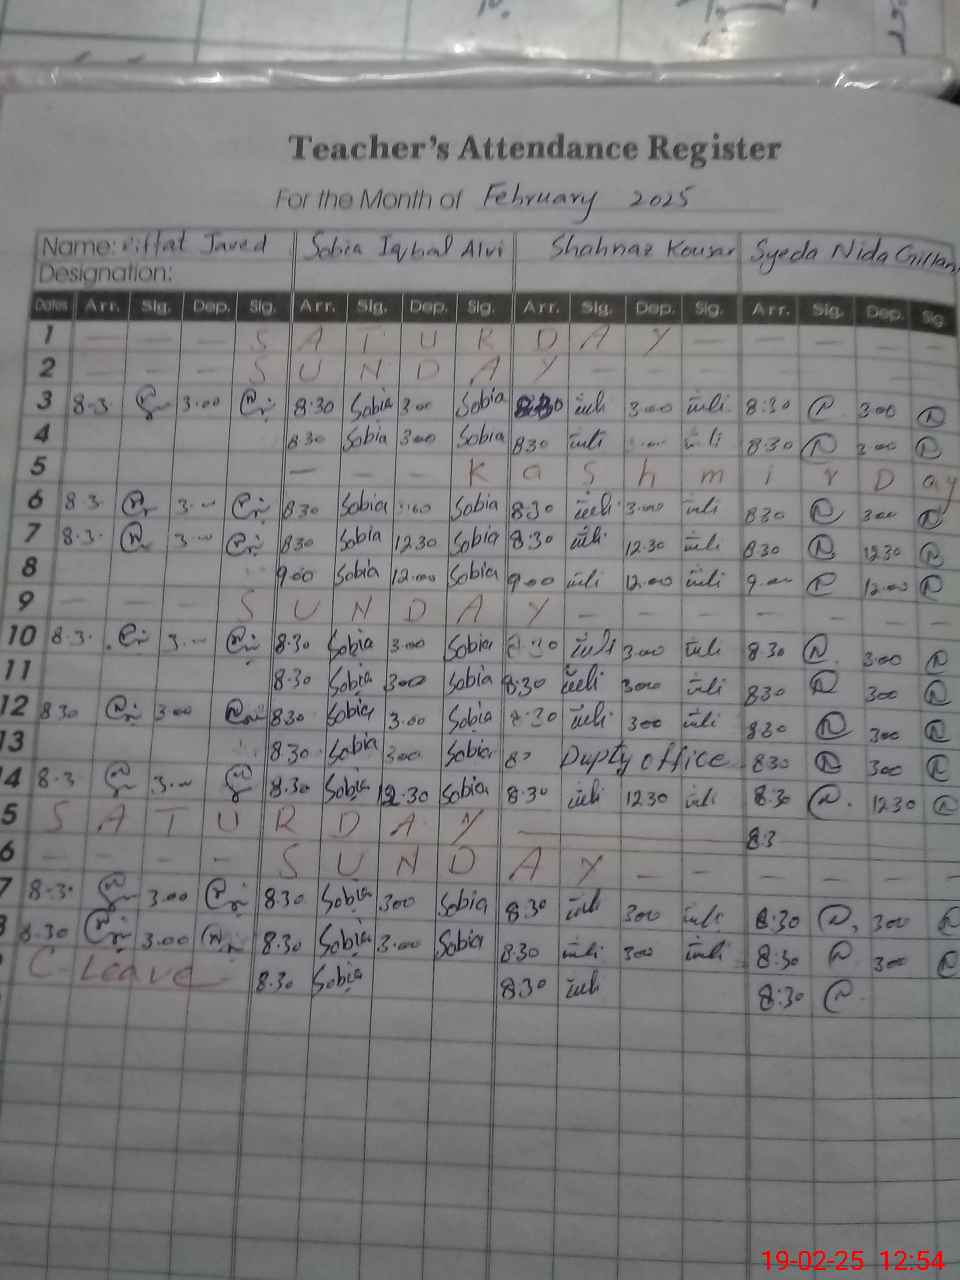 Teacher's Attendance Register
For the Month of February 2025
Name: Riffat Javed Sobia Iqbal Alvi Shahnaz Kousar Syeda Nida Gillan
Designation:
Dates Arr. Sig. Dep. Sig. Arr. Sig. Dep. Sig. Arr. Sig. Dep. Sig. Arr. Sig. Dep. Sig
1 — — — S A T U R D A Y — — — — —
2 — — — S U N D A Y — — — — — —
3 8-3 3.00 8:30 Sobia 300 Sobia 8:30 3.00 8:30 300
4 830 Sobia 300 Sobia 830 8:30 300
5 — — — K a s h m i r D ay
6 8-3. 3.— 830 Sobia Sobia 8:30 3.00 830 300
7 8-3. 3 — 830 Sobia 12.30 Sobia 8:30 12.30 830 1230
8 9.00 Sobia 12.00 Sobia 900 12.00 9.00 12.00
9 — — — S U N D A Y — — — — — —
10 8-3. 3.— 8.30 Sobia 3.00 Sobia 300 8.30 3.00
11 8.30 Sobia 300 Sobia 8:30 300 830 300
12 830 300 830 Sobia 3.00 Sobia 8:30 300 830 300
13 8.30 Sobia 300 Sobia Duputy office 830 300
14 8-3 3.— 8.30 Sobia 12.30 Sobia 8:30 1230 8:30 1230
5 S A T U R D A Y 83
6 — — — — S U N D A Y — — — — —
7 8-3. 3.00 8.30 Sobia 300 Sobia 8:30 300 8:30 300
8.30 3.00 8.30 Sobia 3.00 Sobia 830 300 8:30 300
C-Leave 8.30 Sobia 8:30 8:30
19-02-25 12:54